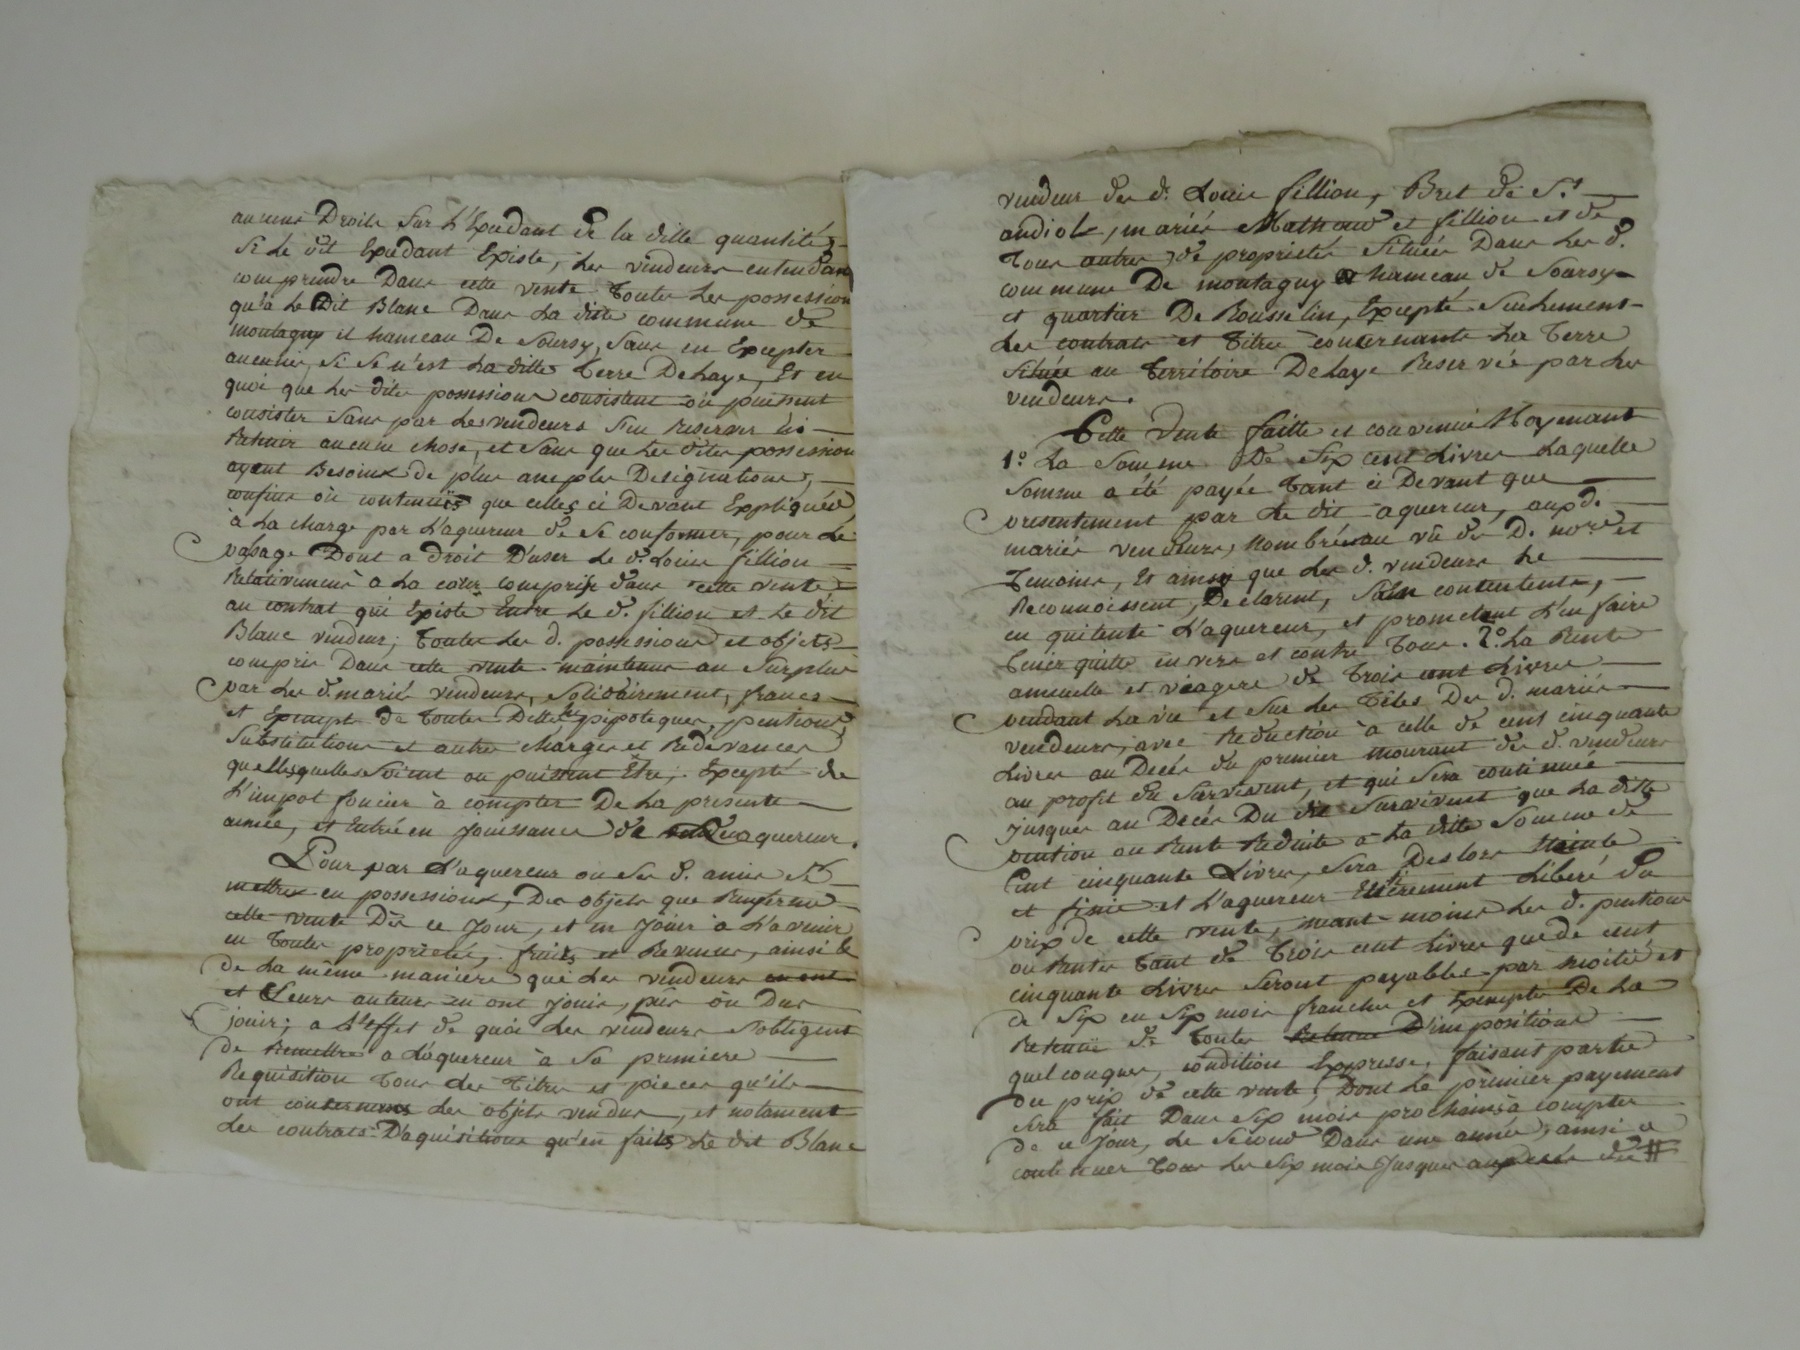 aucuns Droits Sur L'Excedant de la ditte quantité,
Si le dit Excedant Existe, les vendeurs entendant
comprendre Dans cette vente Toutes les possessions
qu'à le Dit Blanc Dans La ditte commune de
montagny et hameau De Soursy, Sans en Excepter
aucunes, Si Se n'est La ditte Terre De Laye, Et en
quoi que les dites possessions consistent où puissent
consister Sans par Les vendeurs S'en Reserver ni
Retenir aucune chose, et Sans que Les dites possession
ayent Besoins de plus amples Designations,
confins où contenuës que celles ci Devant Expliquées
à La charge par L'aquereur de Se conformer, pour Le
passage Dont a droit D'user Le d. Louis fillion
Relativement à La cour comprise dans cette vente
au contrat qui Existe Entre Le d. fillion et Le dit
Blanc vendeur; Toutes Les d. possessions et objets
compris Dans cette vente maintenus au Surplus
par Les d. mariés vendeurs, Solidairement, francs
et Exempt de Toutes Dettes ypoteques, pentions,
Substitutions et autres charges et Redevances
quellesquelles Soient ou puissent Etre, Excepté de
L'impot foncier à compter De La presente
année, et Entrée en jouissance de L'aquereur.
Pour par L'aquereur ou Ses d. amis Se
mettre en possessions, Des objets que Renferme
cette vente Dès ce Jour, et en Jouir à L'avenir
en Toutes proprietés, fruits et Revenus, ainsi &
de La même maniere que Les vendeurs en ont
et Leurs auteurs en ont Jouis, pus où Dus
jouir; a L'effet de quoi Les vendeurs S'obligent
de Remettre a L'aquereur à Sa premiere
Requisition Tous Les Titres et pieces qu'ils
ont concernans Les objets vendus, et notament
Les contrats D'aquisitions qu'en faits Le dit Blanc
vendeur des d. Louis fillion, Bret de St.
andiol, mariés Mathaud et fillion et de
Tous autres, de proprietés Situées Dans Les d.
commune De montagny & hameau de Soursy
et quartier De Rousselin, Excepté Seulement
Les contrats et Titres concernants Les Terre
Située au Territoire De Laye Reservée par Les
vendeurs.
Cette Vente faitte et convenuë Moyenant
1.º La Somme De Six cent Livres Laquelle
Somme a été payée Tant ci Devant que
presentement par Le dit aquereur, aux d.
mariés vendeurs, Nombrée au vû de D. nore. et
Temoins, Et ainsy que Les d. vendeurs Le
Reconnoissent, Declarent, S'en contentent,
en quitente L'aquereur, et prometent L'en faire
Tenir quitte envers et contre Tous. 2.º La Rente
annuelle et viagere de Trois cent Livres
pendant La vie et Sur Les Têtes Des d. mariés
vendeurs, avec Reduction à celle de cent cinquante
Livres au Decès du premier mourant des d. vendeurs
au profit du Survivent, et qui Sera continuée
jusques au Decès Du dit Survivent que La ditte
pention ou Rente Reduite à La ditte Somme de
Cent cinquante Livres, Sera Deslors Eteinte
et finie et L'aquereur Entierement Liberé du
prix de cette vente, neant-moins Les d. pentions
ou Rentes Tant de Trois cent Livres que de cent
cinquante Livres Seront payables par moitié et
de Six en Six mois franches et Exemptes De La
Retenuë de Toutes Retenue D'impositions
quelconques, condition Expresse, faisant partie
du prix de cette vente; Dont Le premier payement
Sera fait Dans Six mois prochains à compter
de ce Jour, Le Second Dans une année; ainsi a
continuer Tous Les Six mois Jusques aux decès des #